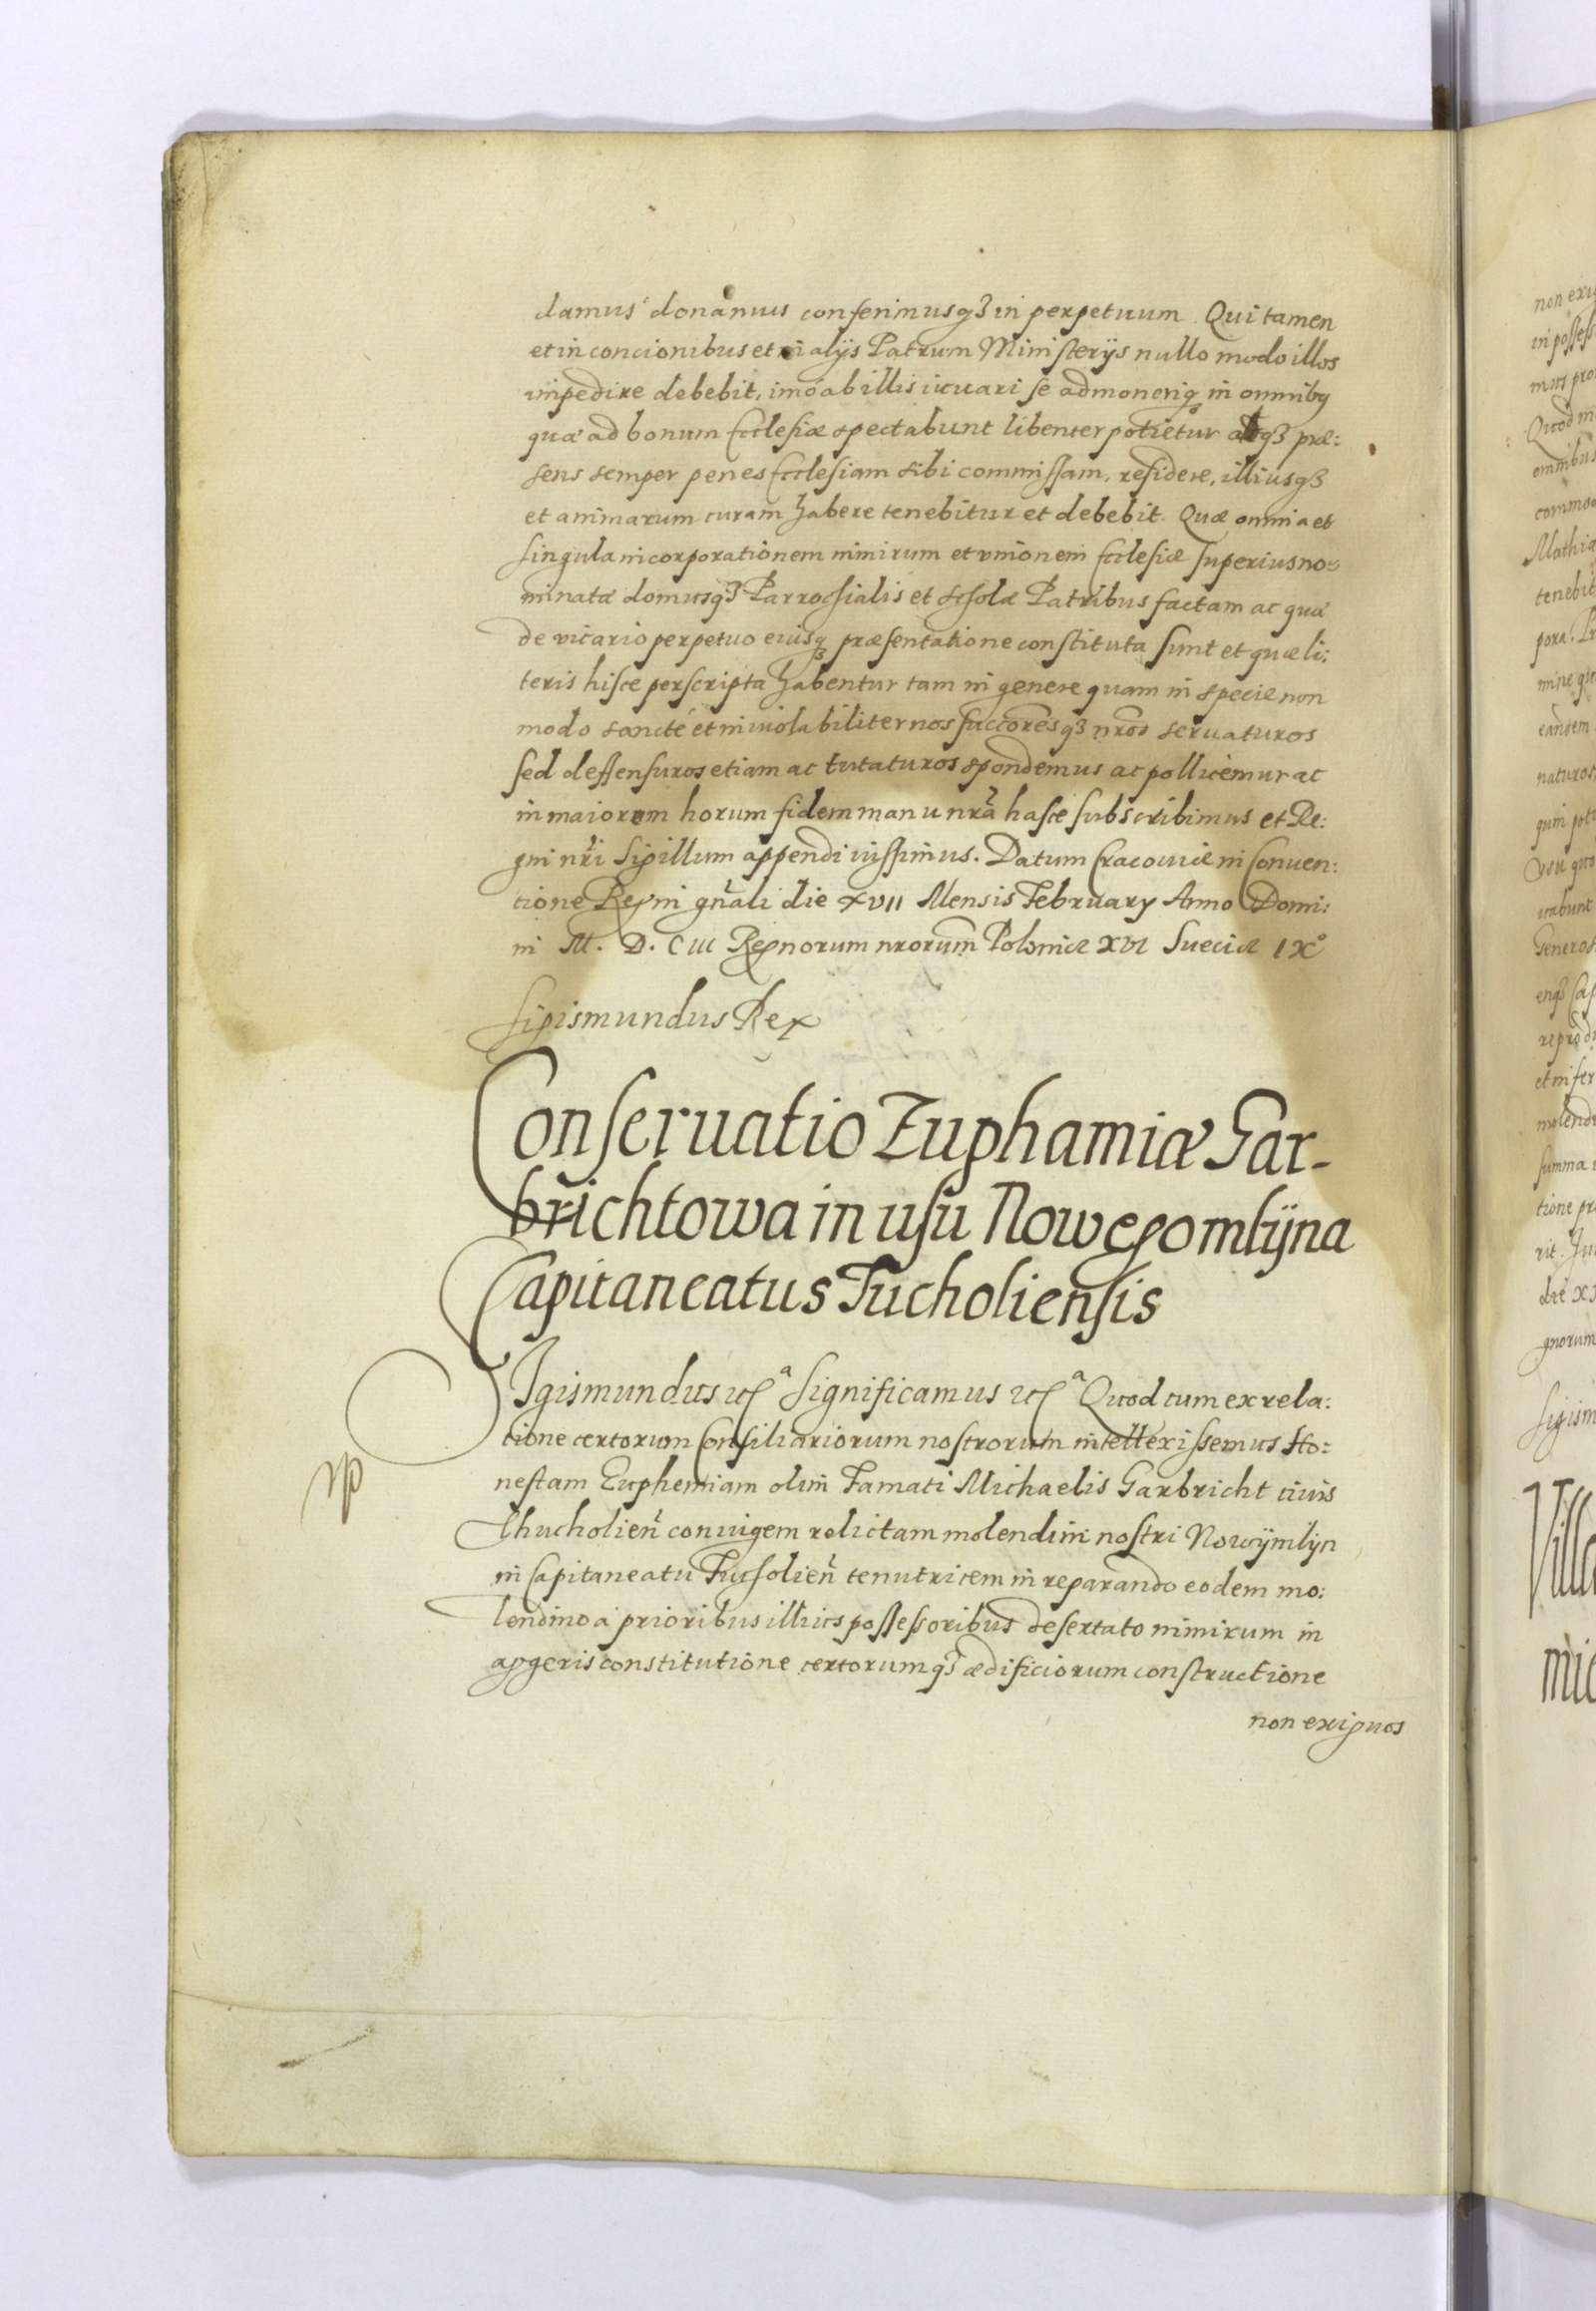 damus donamus conferimusqȝ in perpetuum Qui tamen
et in concionibus et in alijs Patrum Ministerijs nullo modo illos
impedire debebit, imó ab illis iuuari se admonerią in omnibꝯ
quæ ad bonum Ecclesiæ spectabunt libenter patietur atqȝ præ:
sens semper penes Ecclesiam sibi commissam, residere, illiusqȝ
et animarum curam habere tenebitur et debebit. Quæ omnia et
singula incorporationem nimirum et vnionem Ecclesiæ superius no=
minatæ domusqȝ Parrochialis et Scholæ Patribus factam ac quæ
de vicario perpetuo eiusqȝ præsentatione constituta sunt et quæ li:
teris hisce perscripta habentur tam in genere quam in specie non
modo sancté et inuiolabiliter nos succorẽsqȝ nr̃os seruaturos
sed deffensuros etiam ac tutaturos spondemus ac pollicemur ac
in maiorem horum fidem manu nr̃a hasce subscribimus et Re:
gni nr̃i Sigillum appendi iussimus. Datum Cracouiæ in Conuen:
tione Regni gñali die XVII Mensis February Anno Domi:
ni M. D. C III Regnorum nrorum̃ Poloniæ XVI Sueciæ IXº
Sigismundus Rex
Conseruatio Euphamiæ Gar-
brichtowa in usu Nowegomlÿna
Capitaneatus Tucholiensis
Sigismundus etcª Significamus etcª Quod cum ex rela:
tione certorum Consiliariorum nostrorum intellexissemus Ho:
nestam Euphemiam olim Famati Michaelis Garbricht ciuis
Thucholień coniugem relictam molendini nostri Nowÿmlÿn
in Capitaneatu Tucholień tenutricem in reparando eodem mo:
lendino á prioribus illius possessoribus desertato nimirum in
aggeris constitutione certorumqȝ ædificiorum constructione
non exiguos